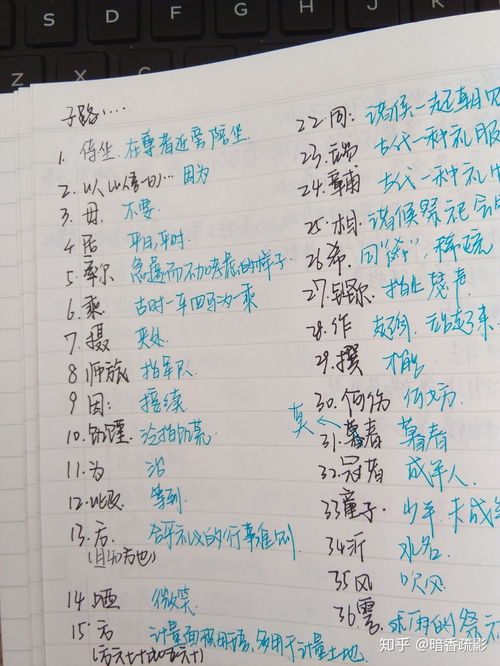 D F G H J K
X C
子路……
1. 侍坐 在尊者近旁陪坐
2. 以 以吾一日… 因为
3. 毋. 不要
4 居 平日,平时
5. 率尔 急遽而不加考虑的样子
6. 乘. 古时一车四马为一乘
7. 摄 夹处
8 师旅 指军队
9 因: 接续
10. 饥馑 泛指饥荒
11. 为 治
12. 比及 等到
13. 方. 合乎礼义的行事准则
(且知方也)
14. 哂 微笑
15. 方 计量面积用语,多用于计量土地
(方六七十如五六十)
22. 同: 诸侯一起朝见
23. 端 古代一种礼服
24. 章甫 古代一种礼
25. 相. 诸侯祭祀会
26 希. 同"稀",稀疏
27. 铿尔. 指止瑟声
28. 作 起身, 站起来.
29. 撰 才能
30. 何伤 何妨.
莫
31. 暮春 暮春
32. 冠者 成年人.
33 童子. 少年,未成
34 沂 水名.
35 风 吹风
36 雩. 求雨的祭
知乎 @暗香疏影